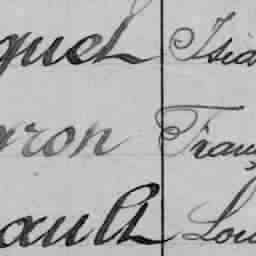 quel Isid
aron Fran
ault Lou